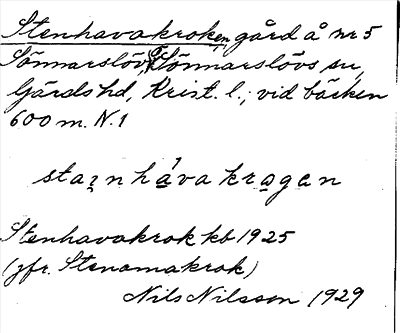 Stenhavakroken, gård å nr 5
Sönnarslöv, Sönnarslövs sn,
Gärds hd, Krist. l., vid bäcken
600 m. N. 1
stai̯nhávakrɑgən
Stenhavakrok kb 1925
(jfr. Stenamakrok)
Nils Nilsson 1929